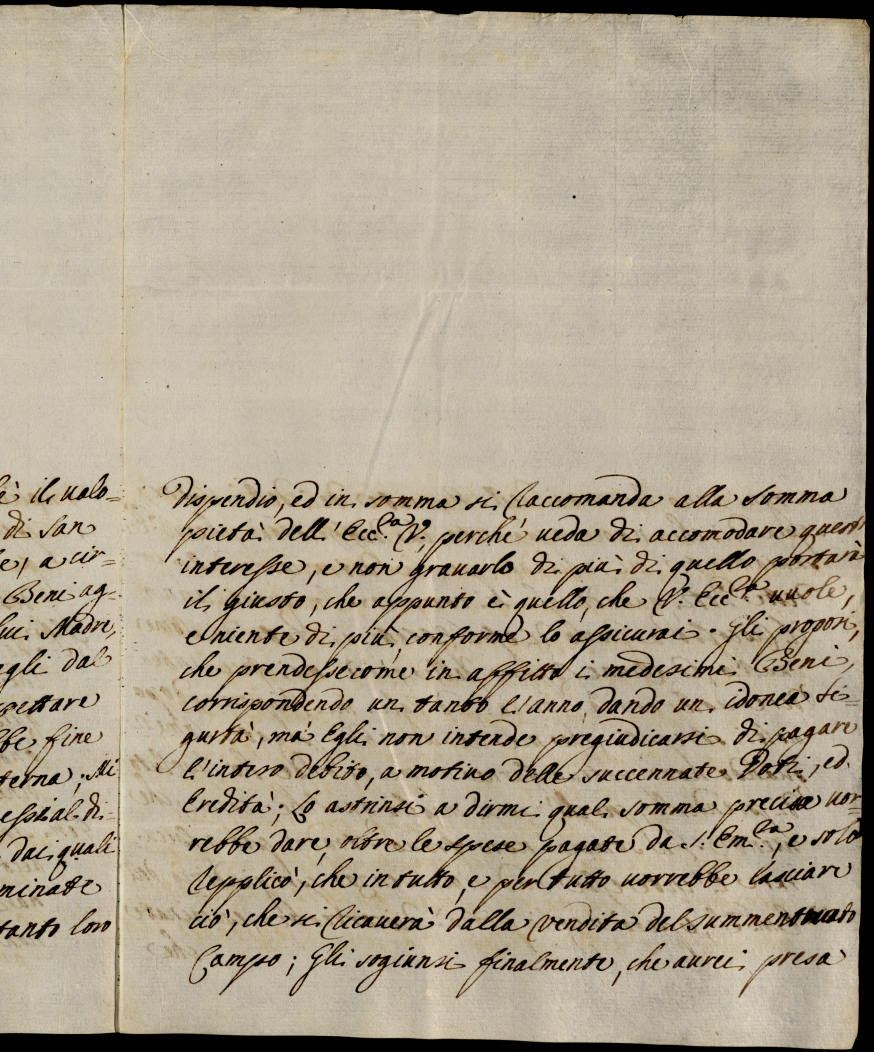 è il valo=
di San
le, a cir=
Beni ag=
lui Madre,
egli dal
spettare
bbe fine
terna; Mi
essi al di=
dai quali
minate
tanto loro
dispendio, ed in somma si raccomanda alla somma
pietà dell' Ecc.za V. perche' veda di accomodare questo
interesse, e non gravarlo di più di quello portarà
il giusto, che appunto è quello, che V. Ecc.za vuole,
e niente di più, conforme lo assicurai. Gli proposi,
che prendesse come in affitto i medesimi Beni,
corrispondendo un tanto l'anno, dando un idonea si=
gurtà, mà Egli non intende pregiudicarsi di pagare
l'intero debito, a motivo delle succennate Doti, ed
Eredità; Lo astrinsi a dirmi qual somma precisa vor=
rebbe dare, oltre le spese pagate da S. Em.za, e solo
replicò, che in tutto, e per tutto vorrebbe lasciare
ciò, che si ricaverà dalla vendita del summentovato
Campo; Gli sogiunsi finalmente, che avrei presa